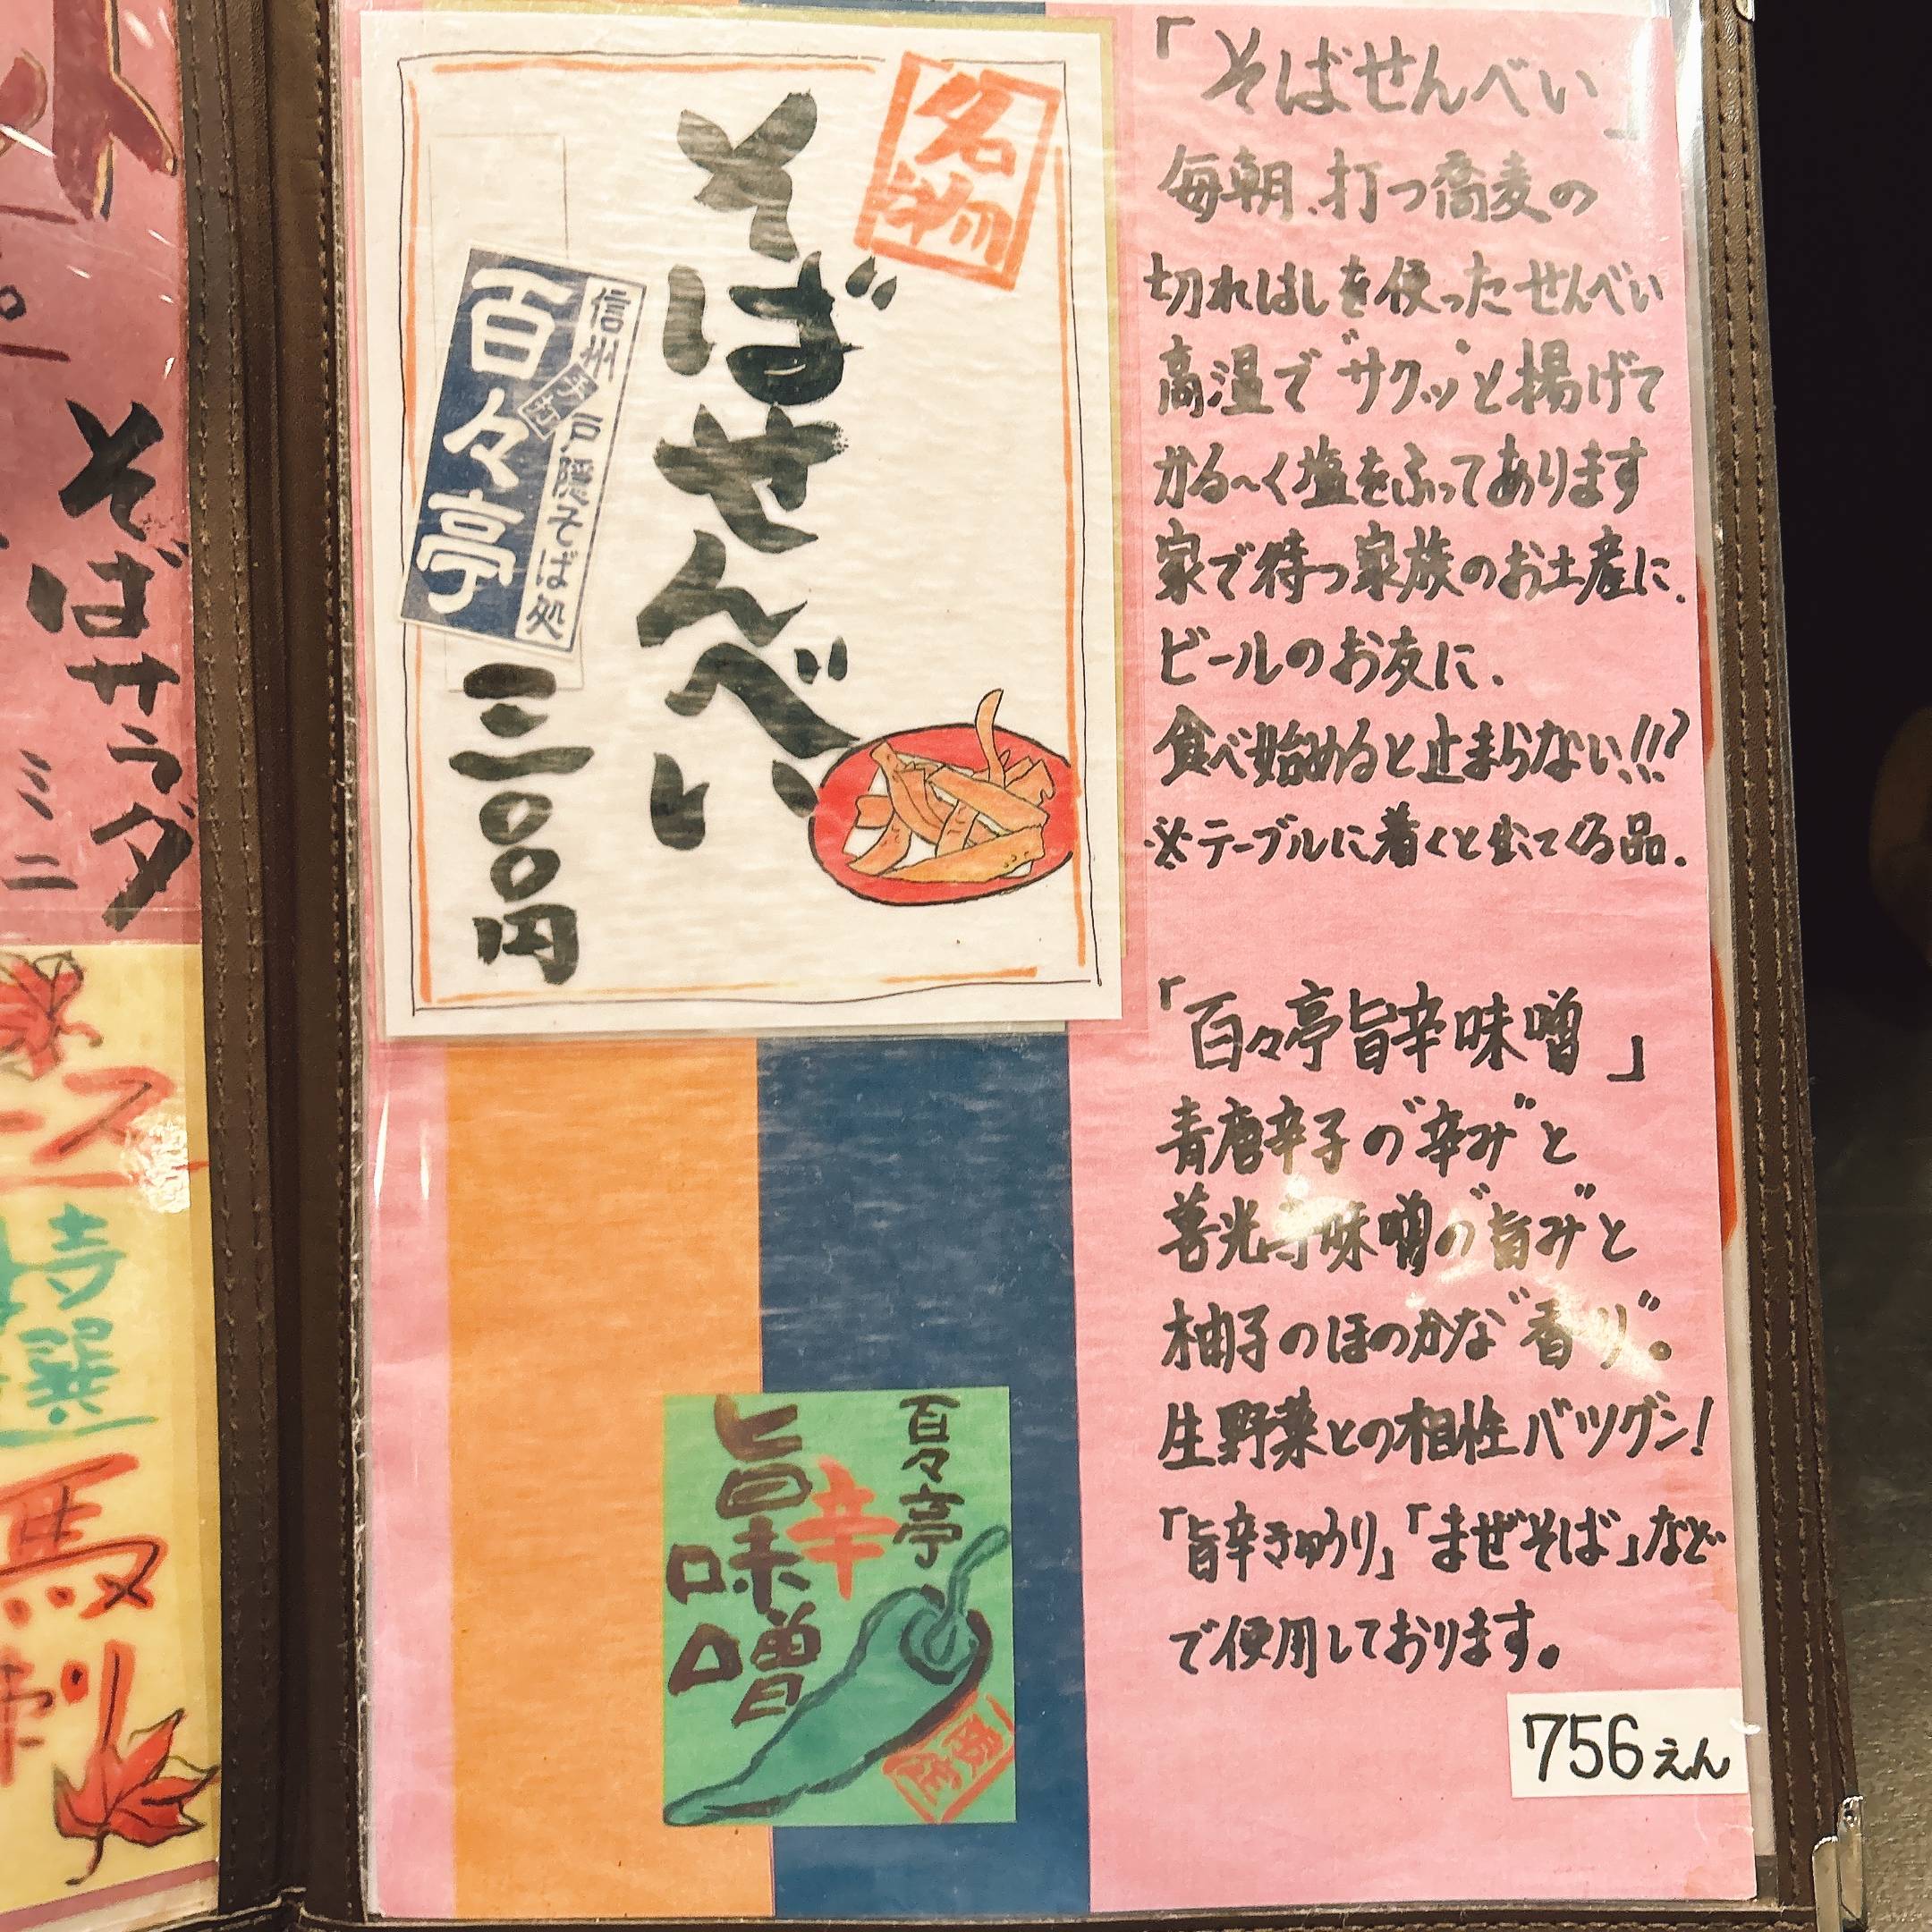 「そばせんべい」
毎朝、打つ蕎麦の
切れはしを使ったせんべい
高温で"サクッ"と揚げて
かる〜く塩をふってあります
家で待つ家族のお土産に、
ビールのお友に、
食べ始めると止まらない!!!
※テーブルに着くと出てくる品。
名物
そばせんべい
信州
戸隠そば処
百々亭
三〇〇円
「百々亭旨辛味噌」
青唐辛子の"辛み"と
善光寺味噌の"旨み"と
柚子のほのかな"香り"。
生野菜との相性バツグン!
「旨辛きゅうり」「まぜそば」など
で使用しております。
756えん
百々亭
旨辛味噌
そばサラダ
ミニ
特選
馬刺